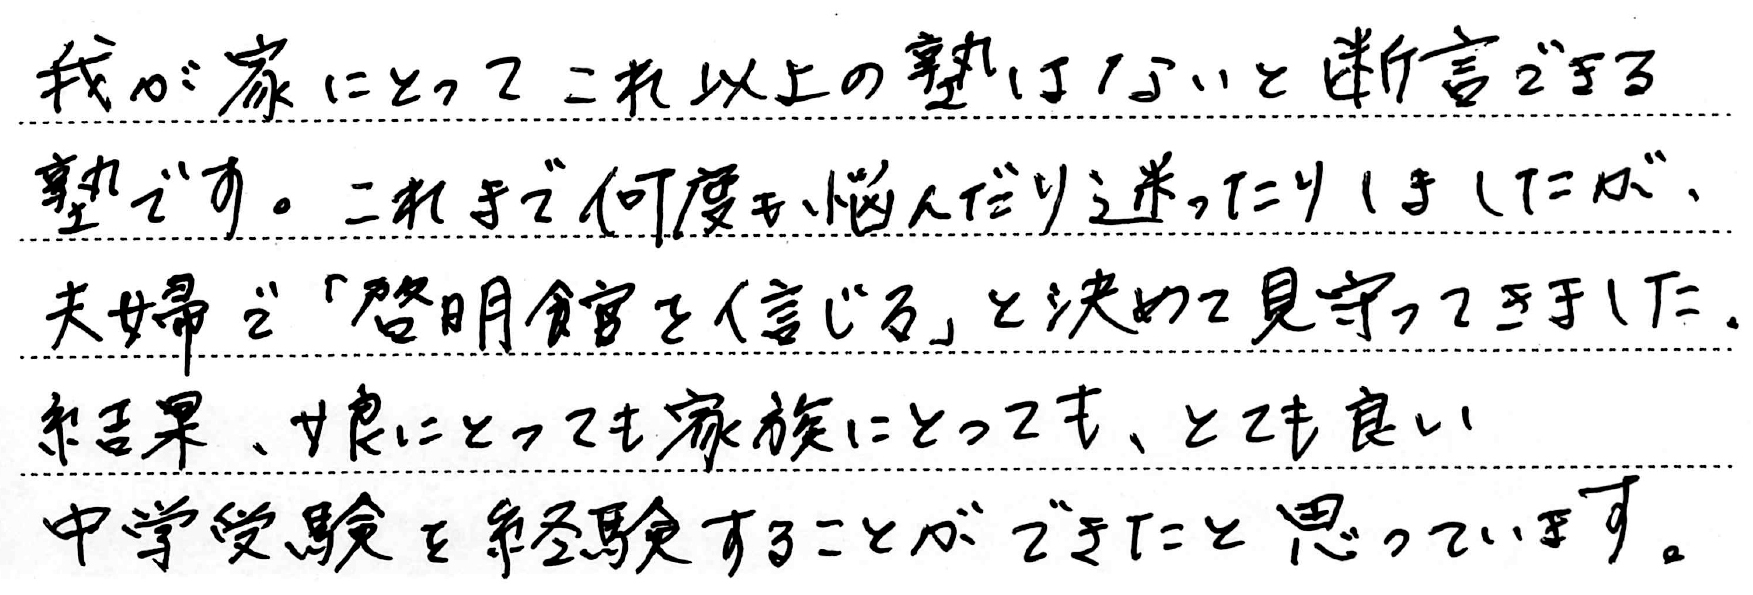 我が家にとってこれ以上の塾はないと断言できる
塾です。これまで何度も悩んだり迷ったりしましたが、
夫婦で「啓明館を信じる」と決めて見守ってきました。
結果、娘にとっても家族にとっても、とても良い
中学受験を経験することができたと思っています。